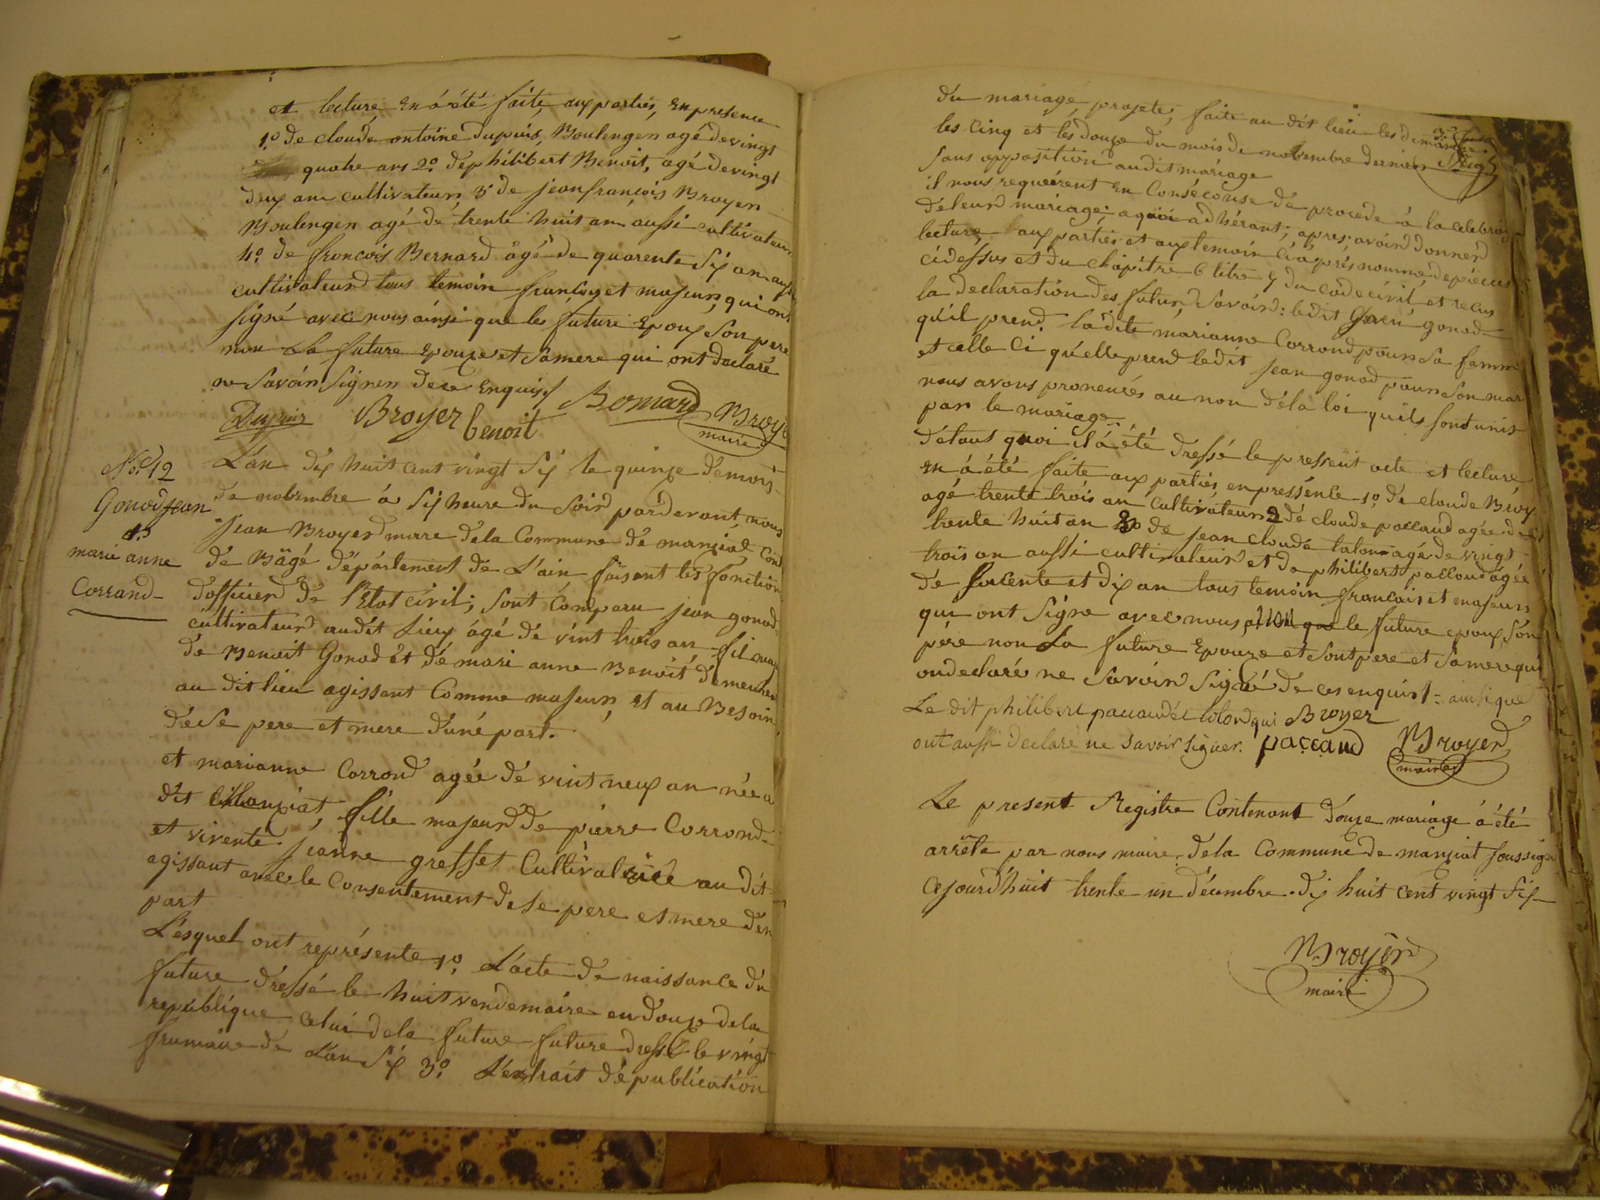 et lecture en a été faite aux parties, en presence
1º de claude antoine dupuis, Boulengen agé de vingt
quatre ans 2º de philibert Benoit, agé de vingt
deux ans cultivateur 3º de jean françois Broyer
Boulengen agé de trente huit an aussi cultivateur
4º de francois Bernard âgé de quarente six an aussi
cultivateurd tous temoin français et majeurs, qui ont
signé avec nous ainsi que les future Epoux son pere
non La future Epouze et sa mere qui ont declaré
ne savoir signer de ce enquis
Dupuis Broyer benoit Bernard Broyer
maire
Nº 12
Gonod jean
et
marie anne
Corrand
L'an dix huit cent vingt six le quinze de mois
de nobembre à six heure du soird pardevant nous
jean Broyerd maire de la Commune de manziat Cont
de Bâgé département de L'ain faisant les fonction
d'officierd de l'Etat civil; sont comparu jean gonod
cultivateurd audit Lieu âgé de vint trois an fil
de Benoit Gonod Et de mari anne Benoit demeurent
au dit lieu agissant Comme majeur, et au Besoin,
de se pere et mere d'une part.
et marianne Corrond agée de vint neuf an née a
dit Manziat, fille majeurd de pierre Corrond
et vivente jeanne greffet Cultivatrice au dit
agissant avec le Consentement de se pere et mere d'en
part
Lesquel ont représente 1º L'acte de naissance du
future dressé le huit vendemaire en douze de la
republique celui de la future future dressé le vingt
frumaire de L'an six 3º L'extrait de publication
du mariage projete; faite au dit lieu les dimanche
les cinq et les douze du mois de nobembre dernier
sans opposition audit mariage
il nous requeirent en Conséconse de procede à la celebration
de leurd mariage a quoi adhérant; apres avoird donnerd
lecture aux parties et aux temoin ci après nommé de pièces
ci dessus et du chapitre 6 titre 5 du code civil et recus
la declaration des futurd savoird: le dit jean gonod
qu'il prend la dite marianne Corrond pour sa femme
et celle ci qu'elle prend ledit jean gonod pour son mari
nous avons proneucés au non de la loi qu'ils sont unis
par le mariage
de tous quoi il à été dressé le pressent acte et lecture
en a été faite aux parties en pressente 1º de claude Broyer
agé trente trois an cultivateur 2 de claude paccaud agée de
trente huit an 3º de jean claude talon agé de vingt
trois an aussi cultivateurd et de philibert paccaud agée
de soicente et dix an tous temoin francais et majeurs
qui ont signe avec nous le future epoux son
père non La future Epouze et sont pere et sa mere qui
ondeclaré ne savoir signé de ces enquist ainsi que
Le dit philibert paccaud et talon qui Broyer
ont aussi declaré ne savoir signer. paccaud Broyerd
maire
Le present Registre Contenant douze mariage à été
arrête par nous maire de la Commune de manziat soussigné
Cejourd'huit trente un décembre dix huit cent vingt six
Broyerd
maire